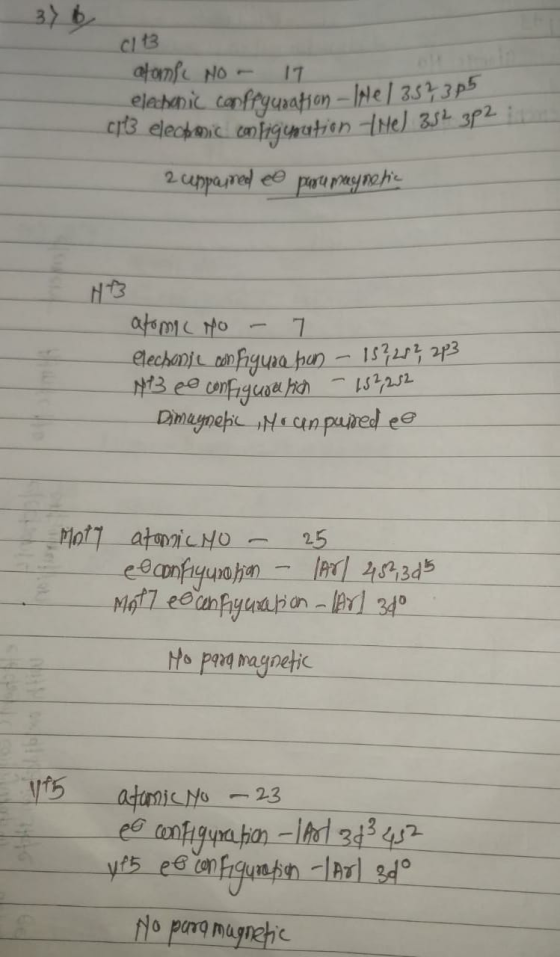 3) b
Cl+3
atomic NO - 17
electronic configuration - |Ne| 3s², 3p5
Cl+3 electronic configuration - |Ne| 3s2 3p2
2 unpaired e⊖ paramagnetic
N+3
atomic NO - 7
electronic configuration - 1s², 2s², 2p3
N+3 e⊖ configuration - 1s²,2s2
Dimagnetic, No unpaired e⊖
Mn+7 atomic NO - 25
e⊖ configuration - |Ar| 4s², 3d5
Mn+7 e⊖ configuration - |Ar| 3d⁰
No paramagnetic
V+5 atomic No - 23
e⊖ configuration - |Ar| 3d³ 4s2
V+5 e⊖ configuration - |Ar| 3d⁰
No paramagnetic